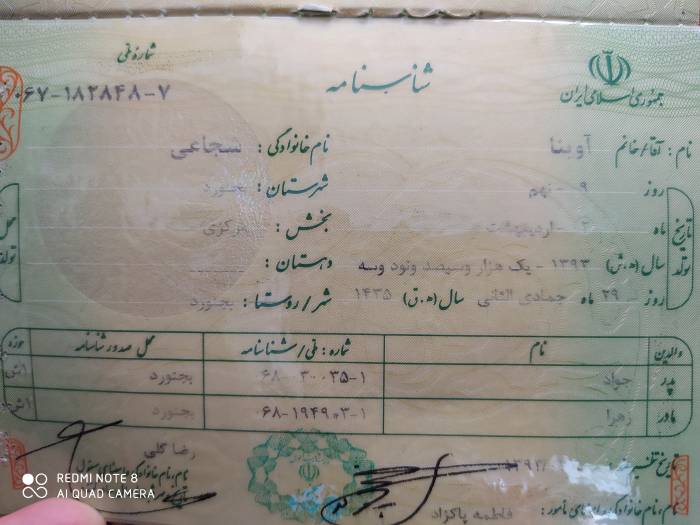 جمهوری اسلامی ایران
شناسنامه
شماره ملی
۰۶۷-۱۸۲۸۴۸-۷
نام : آقا/خانم آوینا نام خانوادگی : شجاعی
تاریخ تولد
روز ۹ - نهم شهرستان : بجنورد
ماه ۲ - اردیبهشت بخش : مرکزی
سال (ه.ش) ۱۳۹۳ - یک هزار و سیصد و نود و سه دهستان :
روز - ۲۹ ماه جمادی الثانی سال (ه.ق) ۱۴۳۵ شهر/روستا : بجنورد
محل تولد
والدین نام شماره : ملی/شناسنامه محل صدور شناسنامه حوزه
پدر جواد ۰۶۸-۰۳۰۰۳۵-۱ بجنورد
مادر زهرا ۰۶۸-۱۹۴۹۰۳-۱ بجنورد
رضا گلی
نام، نام خانوادگی
نام، نام خانوادگی و امضای مأمور : فاطمه پاکزاد
REDMI NOTE 8
AI QUAD CAMERA